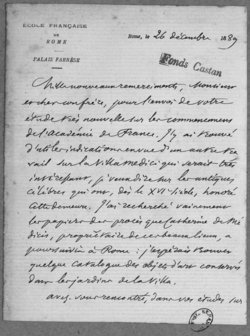 ÉCOLE FRANÇAISE
DE
ROME
PALAIS FARNÈSE
Rome, le 26 décembre 1889
Fonds Castan
Mille nouveaux remerciements, Monsieur
et cher confrère, pour l'envoi de votre
étude très nouvelle sur les commencemens
de l'Académie de France. J'y ai trouvé
d'utiles indications en vue d'un autre tra-
vail sur la Villa Medici qui serait très
intéressant, je veux dire sur les antiques
célèbres qui ont, dès le XVI siècle, honoré
cette demeure. J'ai recherché vainement
les papiers du procès que Catherine de Mé-
dicis, propriétaire de ce beau lieu, a
poursuivi à Rome : j'espérais trouver
quelque catalogue des objets d'art conservés
dans les jardins de la Villa.
avez-vous rencontré, dans vos études sur